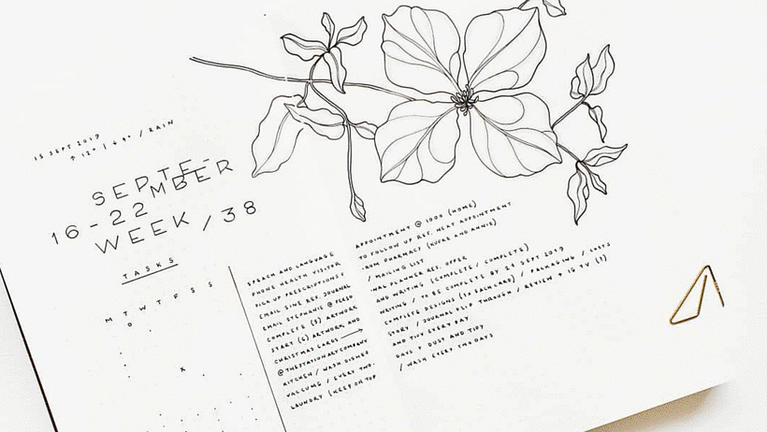 15 SEPT 2019
↑ 12° | ↓ 9° / RAIN
SEPTE-
MBER
16-22
WEEK / 38
TASKS
M T W T F S S
SPEECH AND LANGUAGE APPOINTMENT @ 1000 (HOME)
PHONE HEALTH VISITOR TO FOLLOW UP REF. NEXT APPOINTMENT
PICK UP PRESCRIPTIONS FROM PHARMACY
EMAIL LINE REF. JOURNAL / MAILING LIST
EMAIL STEPHANIE @ PLANNER REF. OFFER
COMPLETE (5) ARTWORK AND WRITING (COMPLETE / COMPLETE)
START (6) ARTWORK AND WRITING / TO BE COMPLETE BY 21 SEPT 2019
CHRISTMAS CARDS → COMPLETE DESIGNS (TO EACH CARD) / PACKAGING / COSTS
@THESTATIONARYCOMPANY STORY / JOURNAL FLIP THROUGH / REVIEW + IG TV (1)
KITCHEN / WASH DISHES AND TIDY EVERY DAY
VACUUMS / EVERY TWO DAYS + DUST AND TIDY
LAUNDRY (KEEP ON TOP / WASH EVERY TWO DAYS